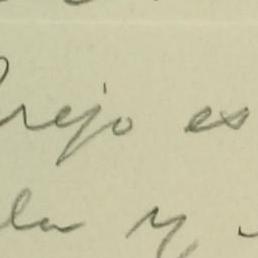 rejo es
la y